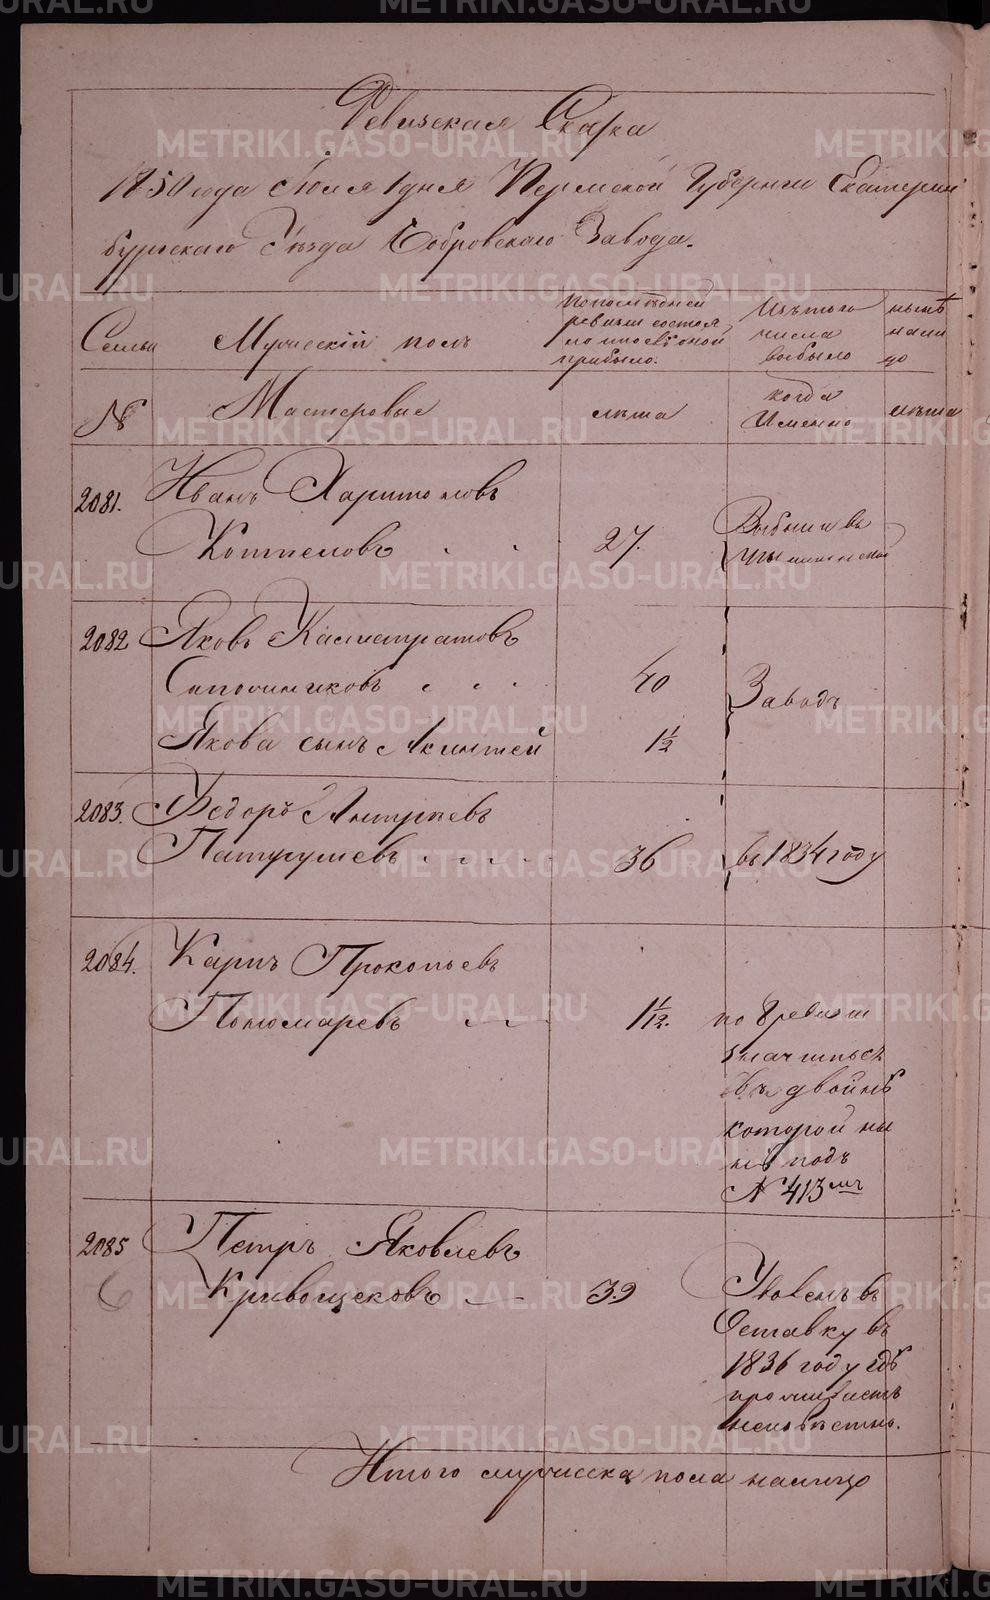 Ревизская Сказка
1850 года Июля 1 дня Пермской Губернии Екатерин
бургскаго Уезда Бобровскаго Завода.
Семьи
Мужескiй полъ
По последней
ревизiи состоя
ло и после оной
прибыло.
Изъ того
числа
выбыло
ныне
нали
цо
№
Мастеровые
лета
когда
Именно
лета
2081.
Иванъ Харитоновъ
Котеловъ . .
27.
Выбыли въ
2082
Яковъ Калистратовъ
Сапожниковъ . . .
40
Заводъ
Якова сынъ Акинфей
1½
2083.
Федоръ Антуфьевъ
Патрушевъ . . . .
36
въ 1834 году
2084.
Карпъ Прокопьевъ
Пономаревъ
1 1/12.
по 8 ревизiи
значился
въ двойне
которой ны
не подъ
№ 413мъ
2085
6
Петръ Яковлевъ
Кривощековъ
39
Уволенъ въ
Отставку въ
1836 году где
проживаетъ
неизвестно.
Итого мужеска пола налицо
METRIKI.GASO-URAL.RU